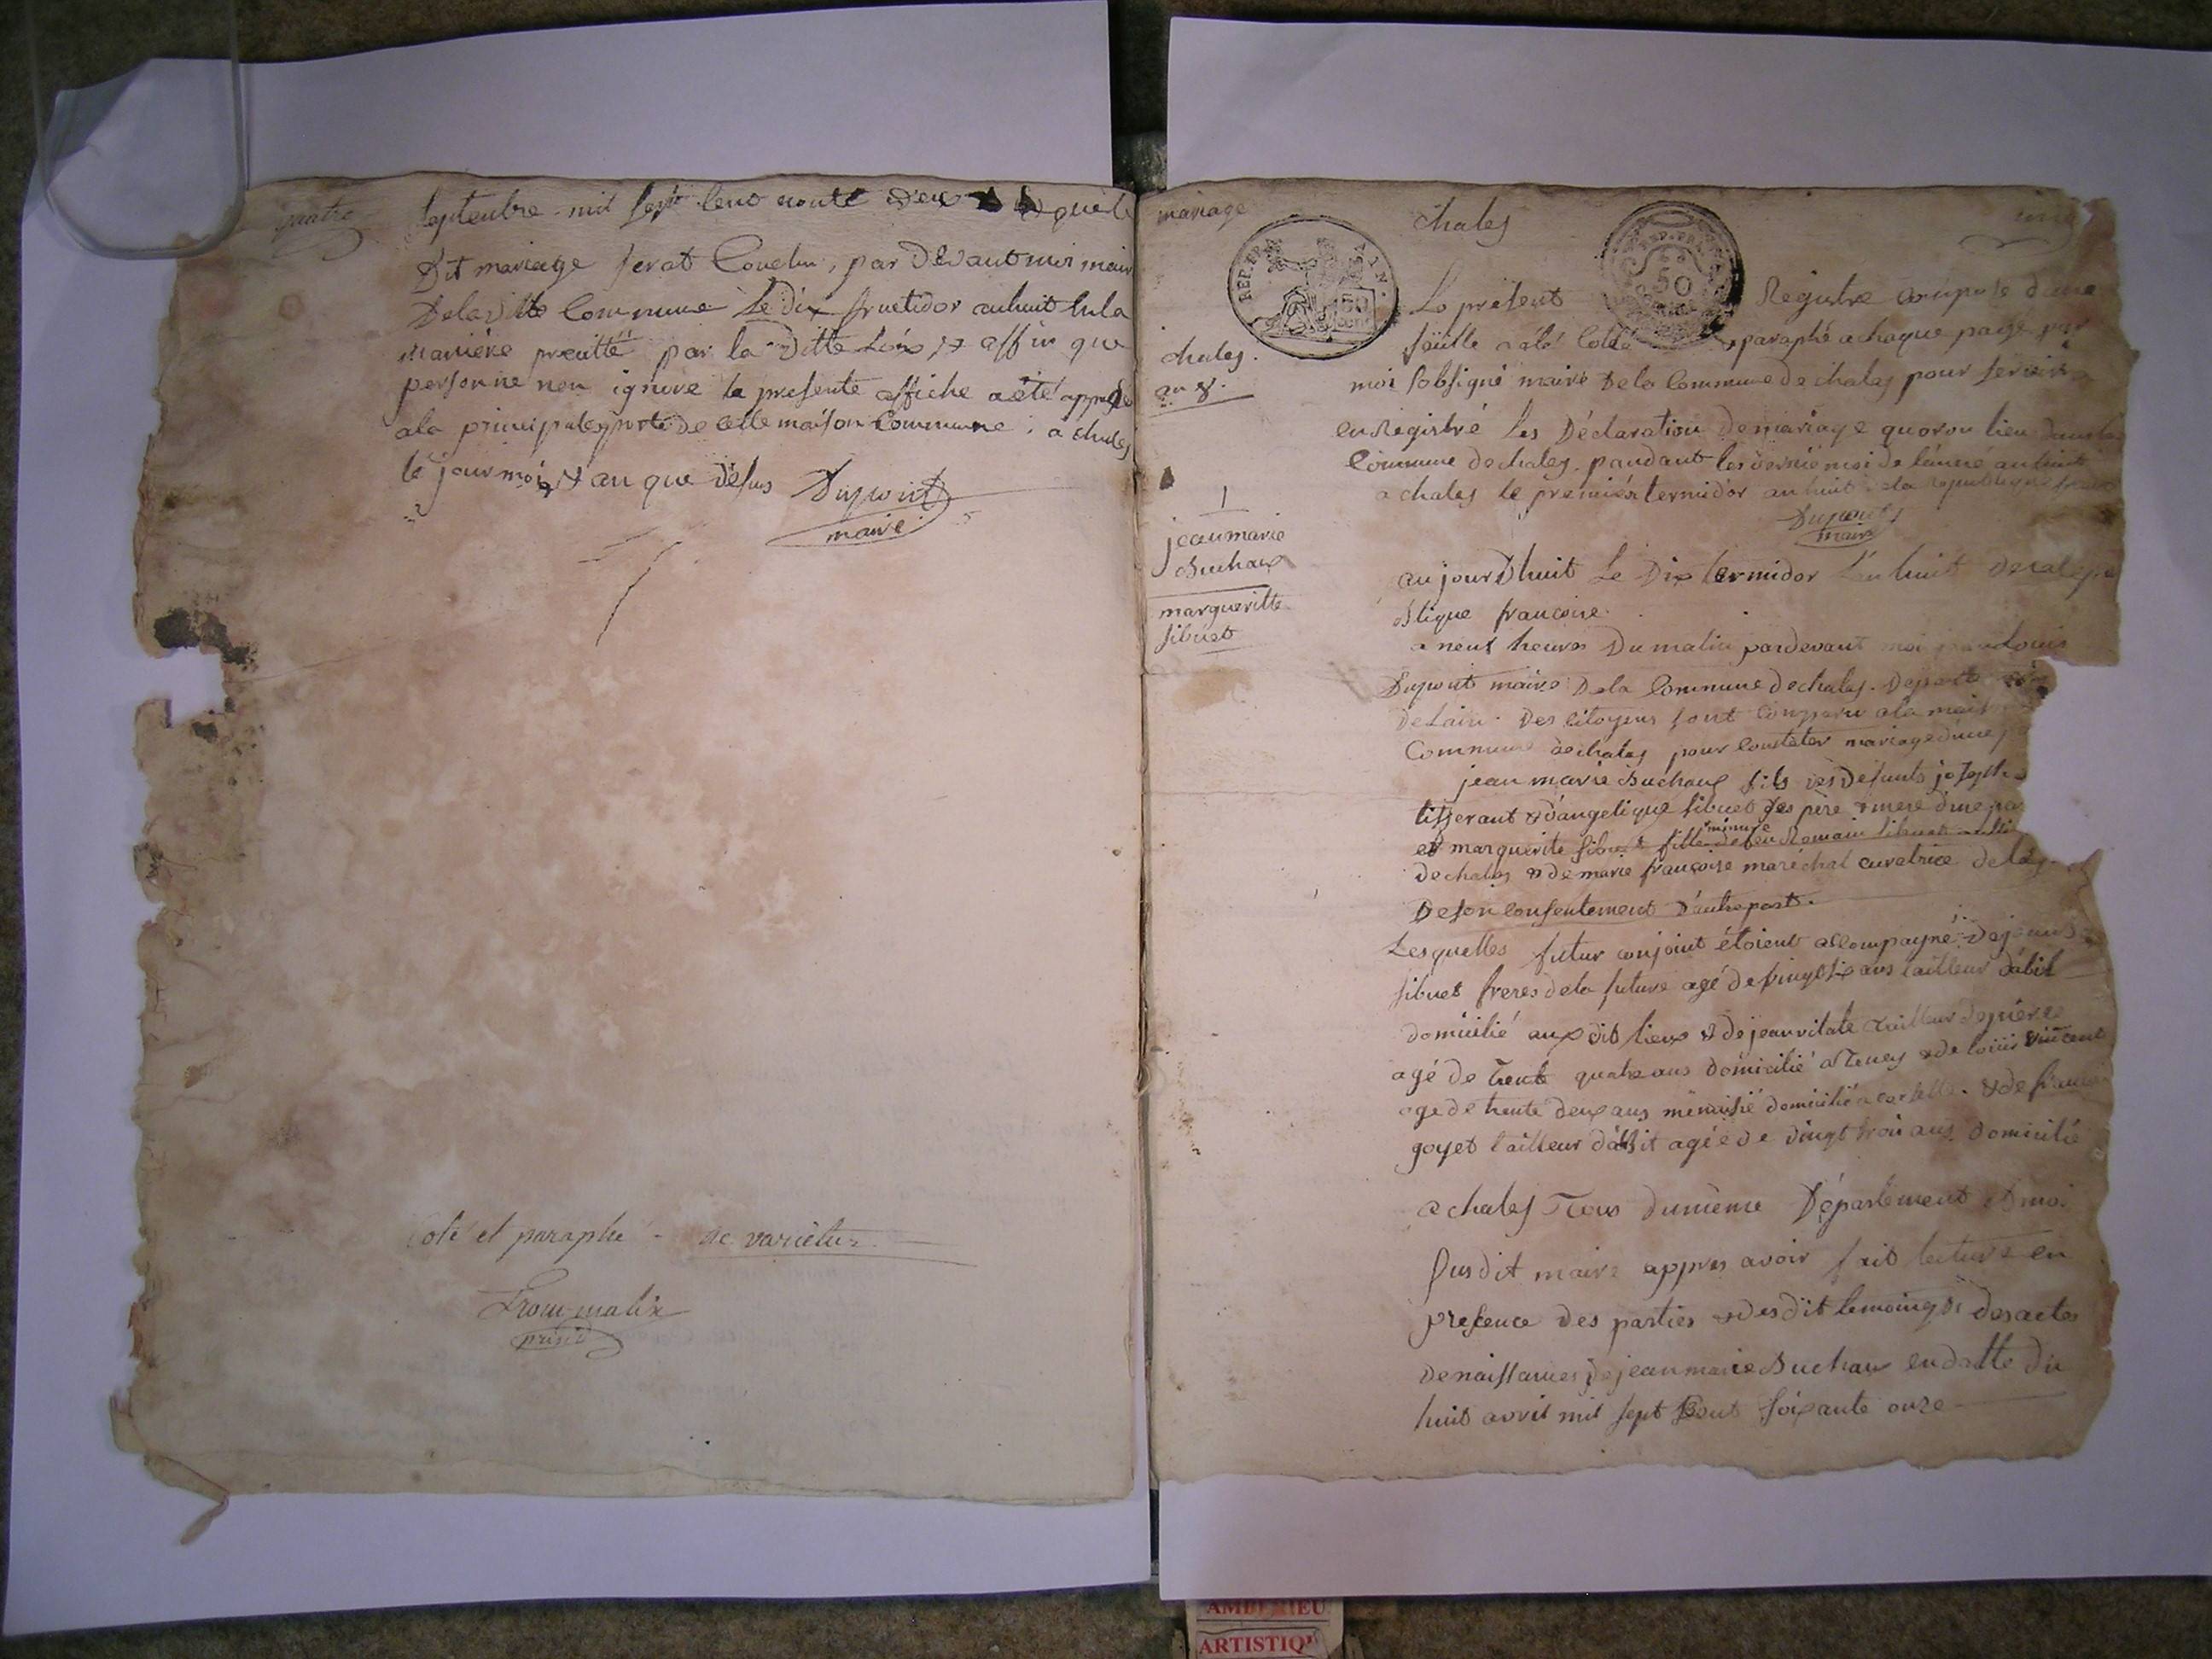 quatre
septembre mil sept cent nonte deux & que le
Dit mariage serat Conclu, par devant moi maire
Dela ditte Commune Le dix fructidor an huit sula
maniere precitté par la Ditte Lois, & affin que
personne nen ignore la presente affiche a été apposé
ala principalle porte de cette maison Commune. a chaley
le jour moi & an que désus Dupont
maire
Coté et paraphé ne varietur
prisid
mariage
chaley
REP. FRA
50
cent
REP. FRA
50
chaley.
an 8.
Le présent Registre composé d'une
feüille a été Cotté paraphé a chaque page par
moi sobsigné maire Dela Commune de chaley pour servir a
enRegistré les Déclaration de mariage quoron lieu dans la
Commune de chaley pandant les dernié moi de l'anné an huit
a chaley le premiér termidor an huit de la republique
Dupont
maire
1
jean marie
Buchaux
margueritte
sibuet
aujourdhuit Le Dix termidor l'an huit de la
blique francoise.
a neuf heures Du matin pardevant moi jean louis
Dupont maire Dela Commune de chaley. Departe
de Lain. Des citoyens sont Comparu ala mai
Commune de chaley pour Constater mariage d'une
jean marie Buchaux fils des défunts joseph
tisserant & d'angelique sibuet ses père & mere d'une pa
et marguerite sibuet fille mineure de feu Romain sibuet
de chaley & de marie françoise maréchal curatrice de
De son consentement D'autre part.
Lesquelles futur conjoint étoient accompagné De
sibuet freres de la future agé de vingt six ans tailleur d'abit
domicilié aux dit lieux & de jean vitale tailleur de pierre
agé de trente quatre ans domicilié a Teney & de louis vincent
age de trente deux ans menuisié domicilié a & de franc
goyet tailleur d'abit agée de vingt trois ans domicilié
a chaley Tous du même Département & moi
susdit maire appres avoir fait lecture en
presence des parties & des dit temoings des actes
de naissances de jean marie Buchaux en datte du
huit avril mil sept Cent soixante onze
AMBERIEU
ARTISTIQ